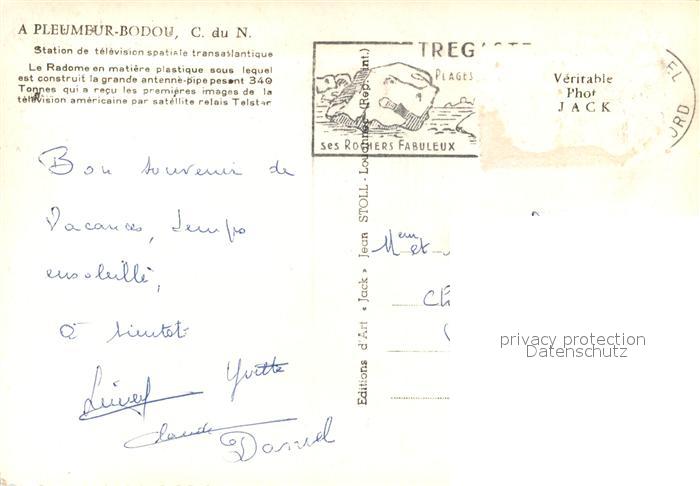 A PLEUMEUR-BODOU, C. du N.
Station de télévision spatiale transatlantique
Le Radome en matière plastique sous lequel
est construit la grande antenne-pipe pesant 340
Tonnes qui a reçu les premières images de la
télévision américaine par satellite relais Telstar
Bon souvenir de
Vacances, temps
ensoleillé,
à bientot
Yvette
Claude
Daniel
TREG
PLAGES
SES ROCHERS FABULEUX
Editions d'Art « Jack » Jean STOLL - (Rep. int.)
Véritable
Phot
JACK
et
privacy protection
Datenschutz